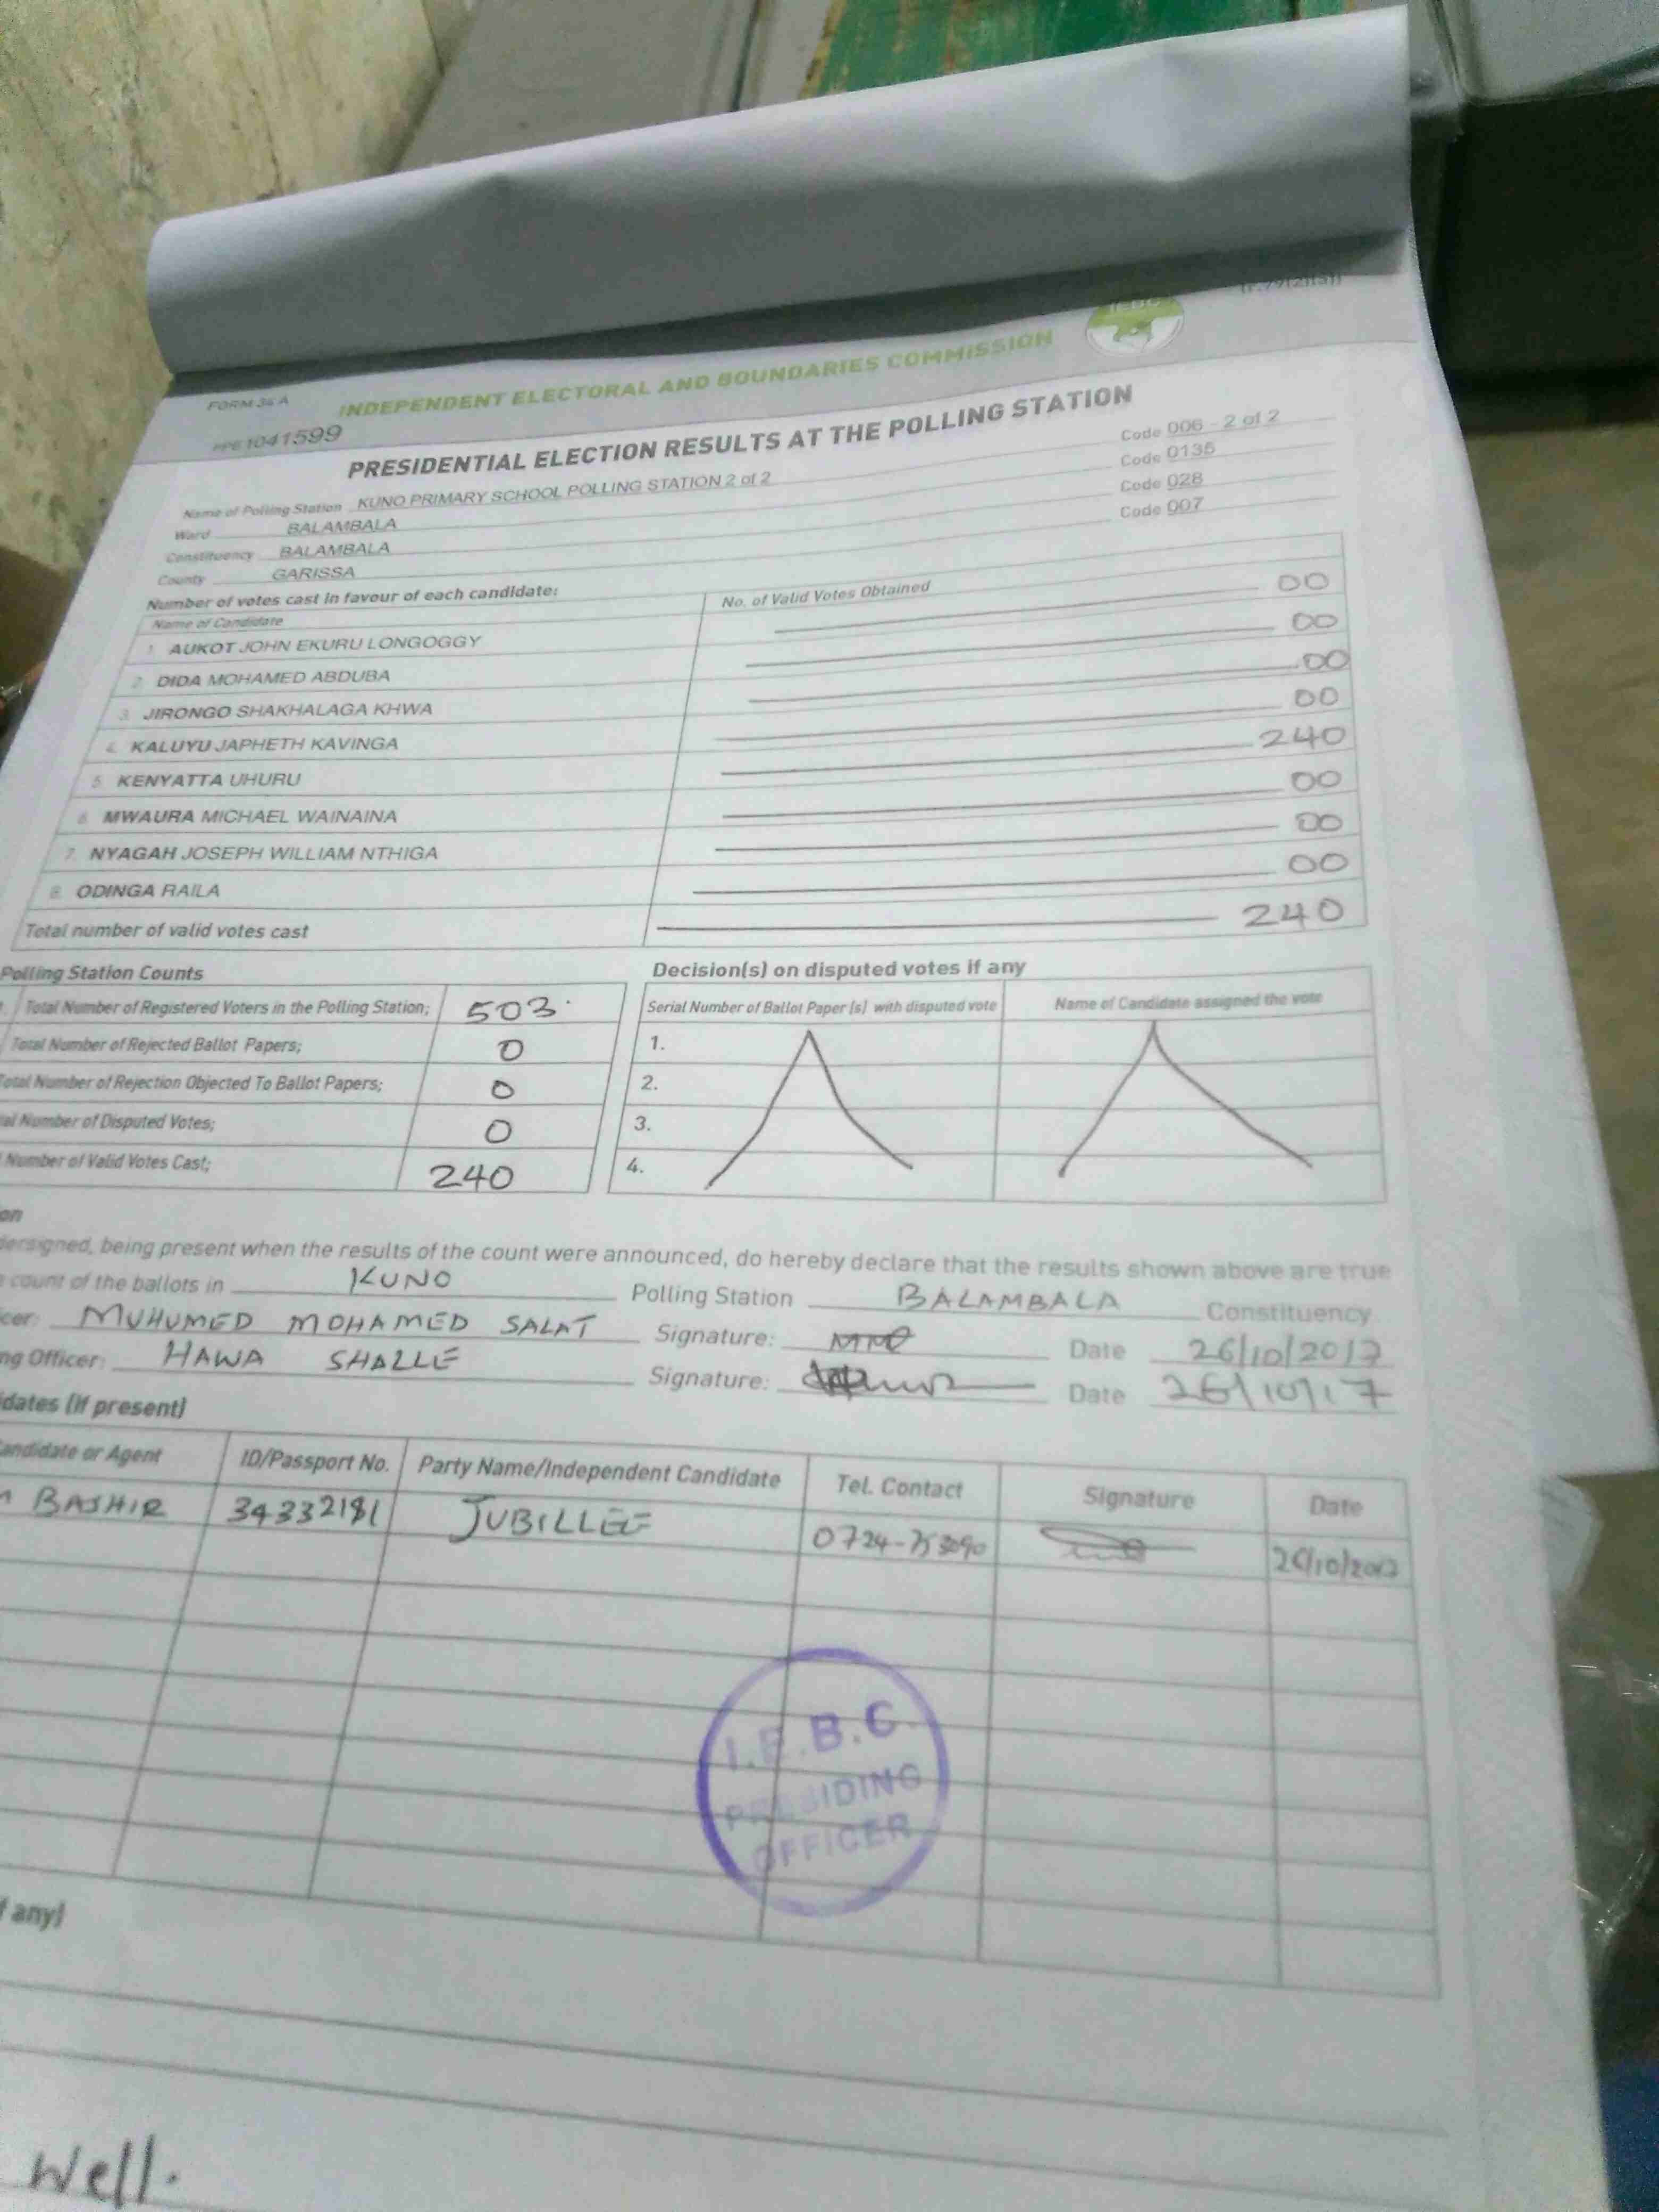 FORM 34 A
INDEPENDENT ELECTORAL AND BOUNDARIES COMMISSION
1041599
PRESIDENTIAL ELECTION RESULTS AT THE POLLING STATION
Name of Polling Station KUNO PRIMARY SCHOOL POLLING STATION 2 of 2 Code 006 - 2 of 2
Ward BALAMBALA Code 0135
Constituency BALAMBALA Code 028
County GARISSA Code 007
Number of votes cast in favour of each candidate:
Name of Candidate No. of Valid Votes Obtained
1. AUKOT JOHN EKURU LONGOGGY 00
2. DIDA MOHAMED ABDUBA 00
3. JIRONGO SHAKHALAGA KHWA 00
4. KALUYU JAPHETH KAVINGA 00
5. KENYATTA UHURU 240
6. MWAURA MICHAEL WAINAINA 00
7. NYAGAH JOSEPH WILLIAM NTHIGA 00
8. ODINGA RAILA 00
Total number of valid votes cast 240
Polling Station Counts
Total Number of Registered Voters in the Polling Station; 503
Total Number of Rejected Ballot Papers; 0
Total Number of Rejection Objected To Ballot Papers; 0
Number of Disputed Votes; 0
Number of Valid Votes Cast; 240
Decision(s) on disputed votes if any
Serial Number of Ballot Paper (s) with disputed vote Name of Candidate assigned the vote
1.
2.
3.
4.
being present when the results of the count were announced, do hereby declare that the results shown above are true
count of the ballots in KUNO Polling Station BALAMBALA Constituency
MUHUMED MOHAMED SALAT Signature: Date 26/10/2017
Officer: HAWA SHALLE Signature: Date 26/10/17
(if present)
Candidate or Agent ID/Passport No. Party Name/Independent Candidate Tel. Contact Signature Date
BASHIR 34332181 JUBILLEE 26/10/2017
I.E.B.C
PRESIDING
OFFICER
any)
Well.